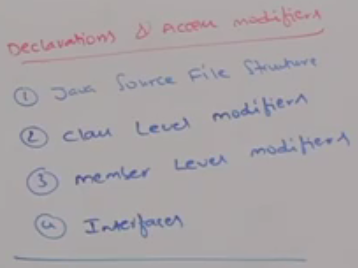 Declarations & Access modifiers
① Java Source File Structure
② Class Level modifiers
③ member Level modifiers
④ Interfaces